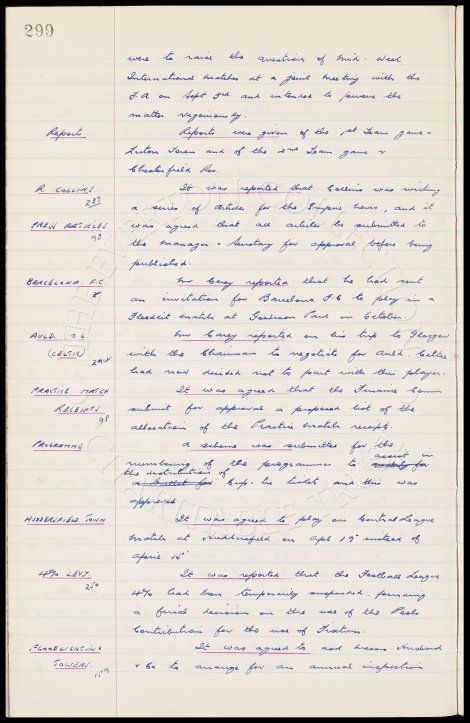 299
were to raise the question of mid-week
International matches at a joint meeting with the
F.A on Sept 3rd and intended to pursue the
matter vigorously.
Reports
Reports were given of the 1st Team game v
Luton Town and of the 2nd Team game v
Chesterfield Res.
R. COLLINS
It was reported that Collins was writing
a series of articles for the Empire News, and it
PRESS ARTICLES
was agreed that all articles be submitted to
the manager & Secretary for approval before being
published.
BARCELONA F.C.
Mr Carey reported that he had sent
an invitation for Barcelona F.C to play in a
Floodlit match at Goodison Park in October.
AULD. O.L
Mr Carey reported on his trip to Glasgow
(CELTIC)
with the Chairman to negotiate for Auld. Celtic
had now decided not to part with this player.
PRACTICE MATCH
It was agreed that the Finance Comm
RECEIPTS
submit for approval a proposed list of the
allocation of the Practice match receipts.
PROGRAMME
A scheme was submitted for the
numbering of the programmes to assist in
the distribution of
Cup-tie tickets and this was
approved.
HUDDERSFIELD TOWN
It was agreed to play our Central League
match at Huddersfield on Apl 13 instead of
April 15
4% LEVY.
It was reported that the Football League
4% had been temporarily suspended, pending
a final decision on the use of the Pools
Contribution for the use of Fixtures.
FLOODLIGHTING
It was agreed to ask Messrs Husband
TOWERS.
& Co to arrange for an annual inspection